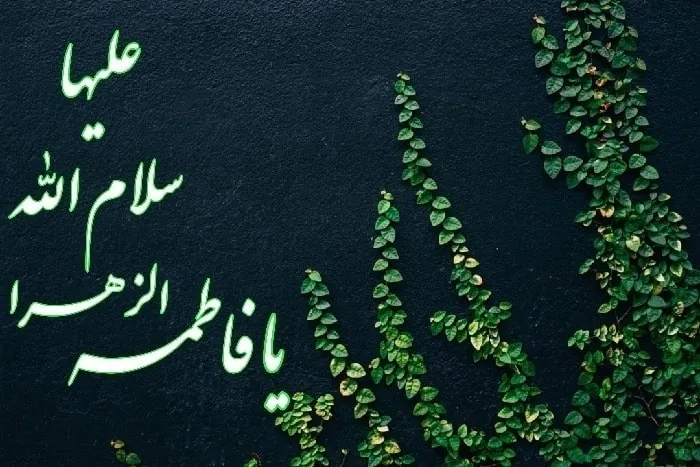 یا فاطمه الزهرا
سلام الله
علیها